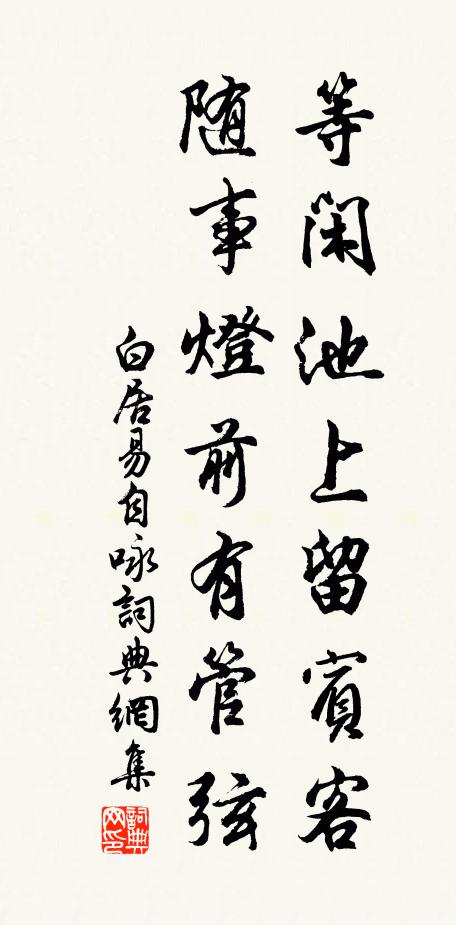 等閑池上留賓客
随事燈前有管弦
白居易自咏詞典網集
詞典网印